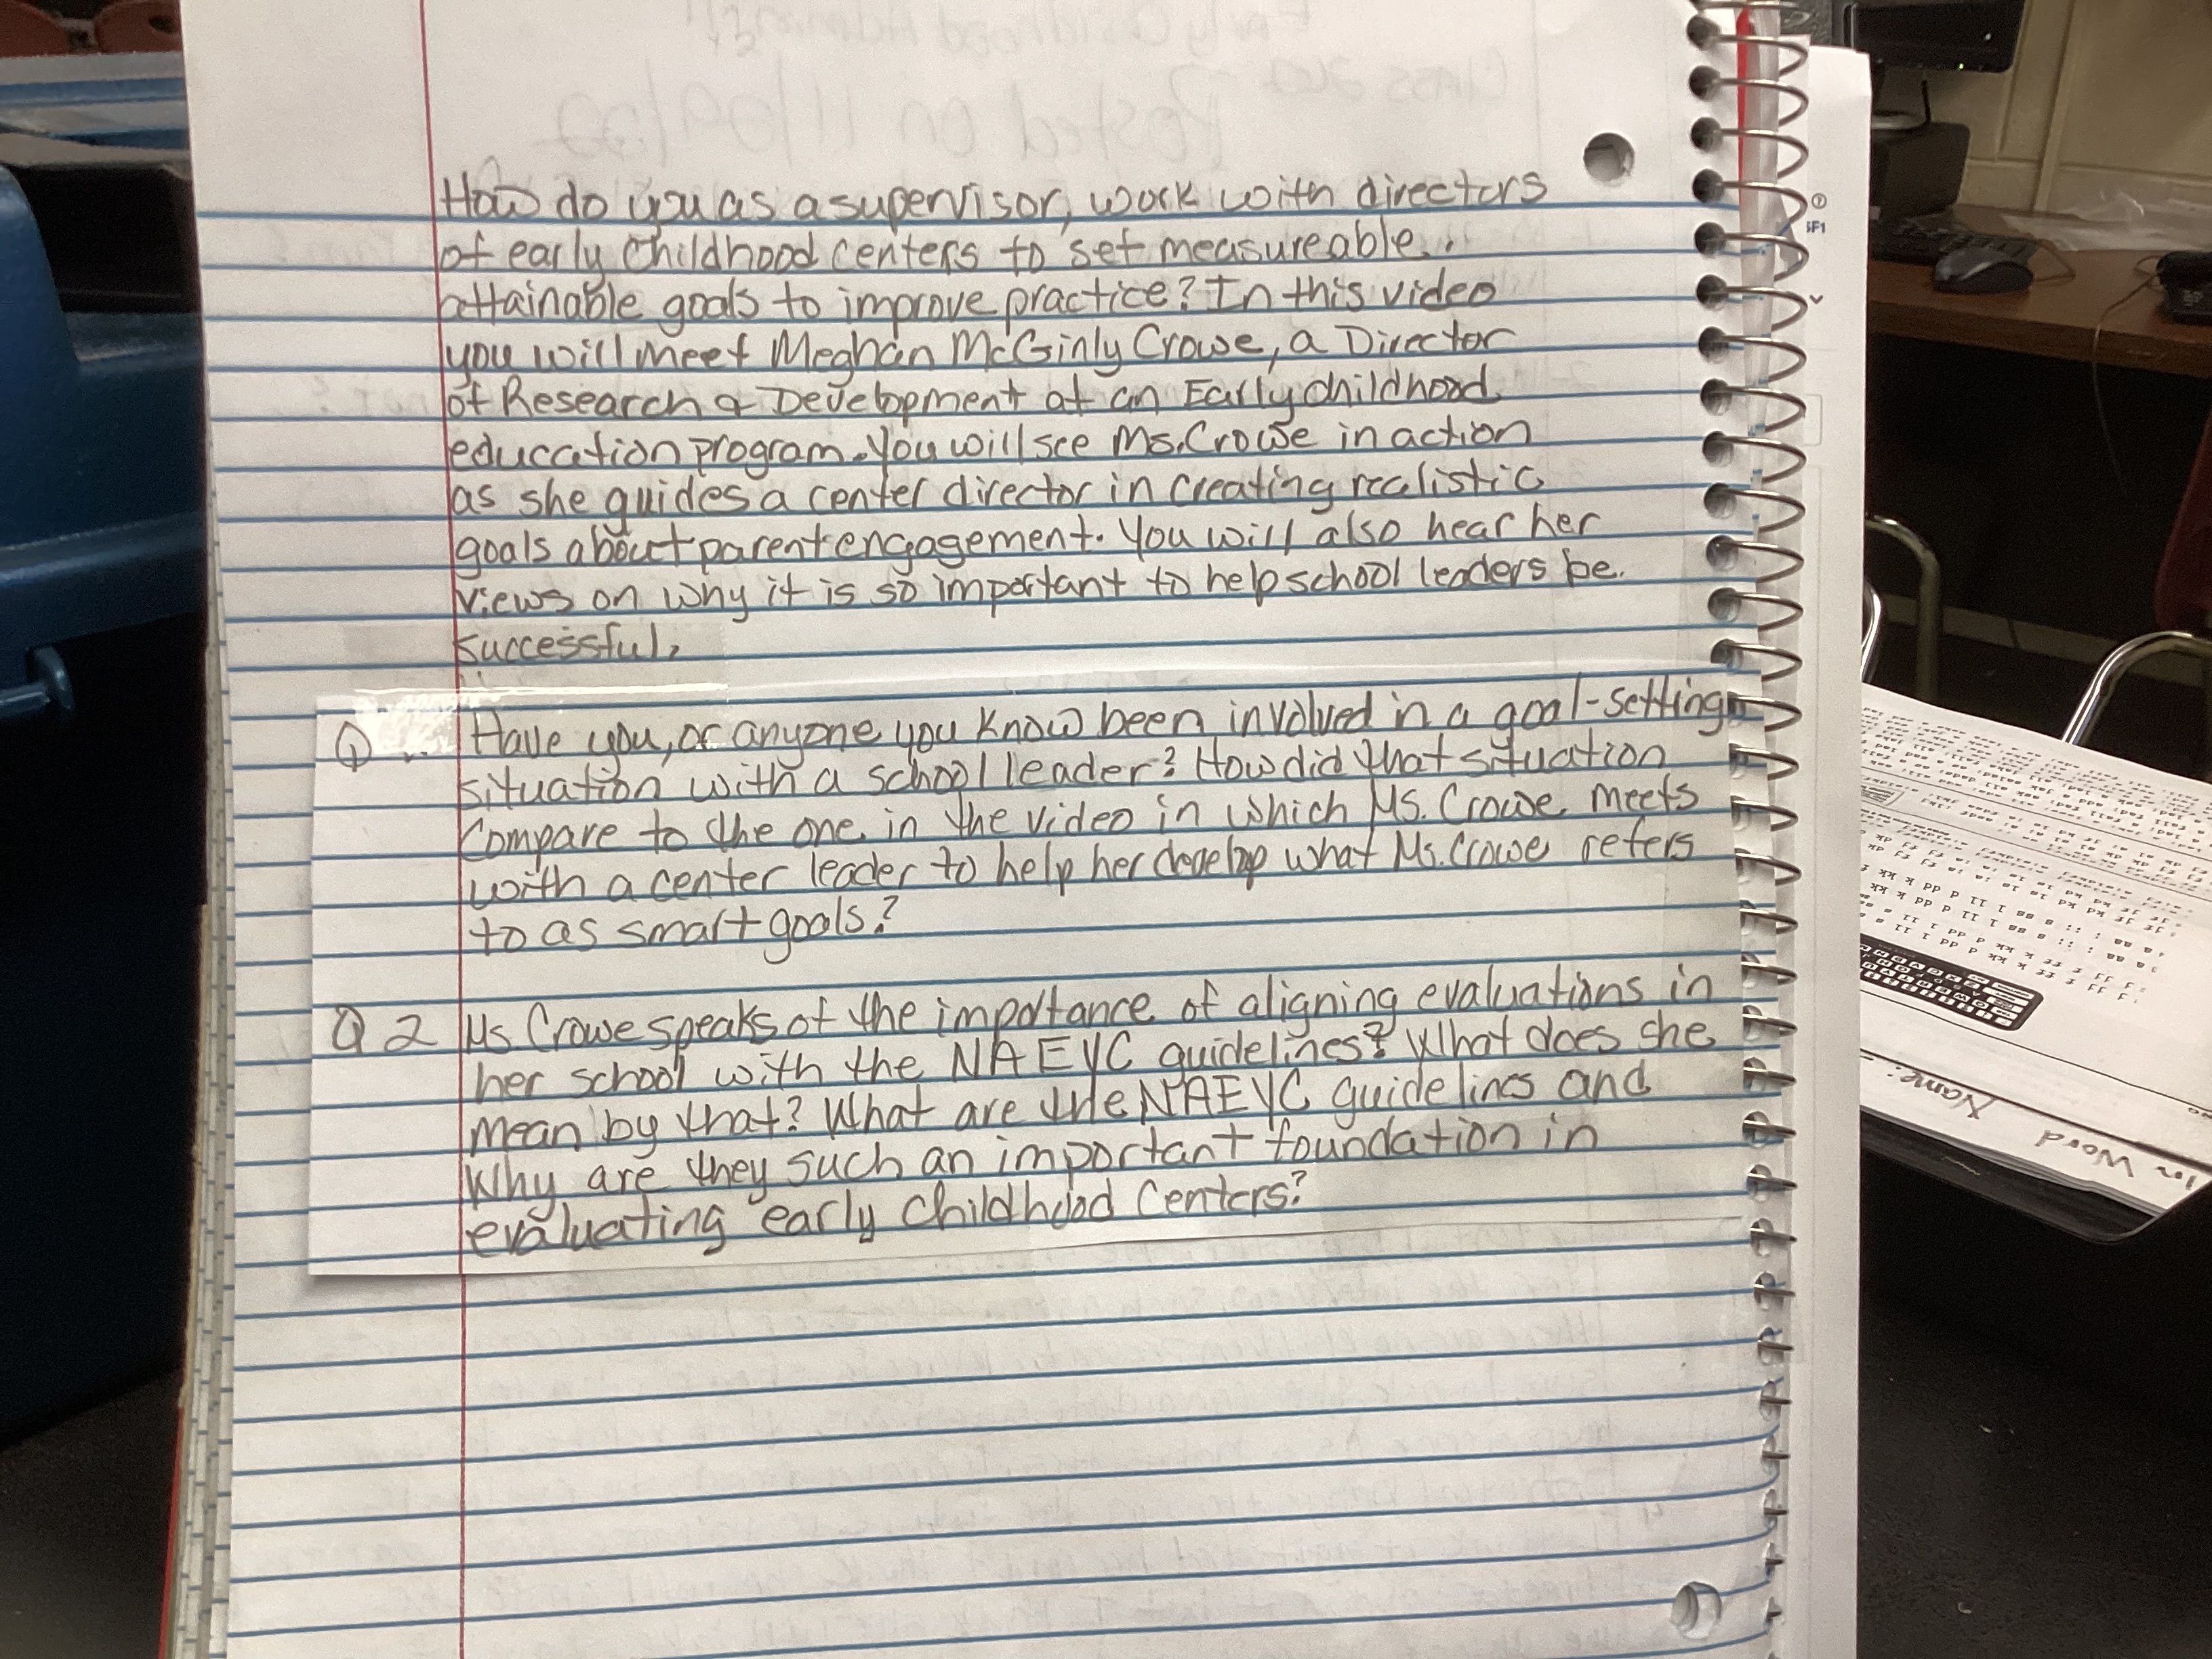 How do you as a supervisor, work with directors
of early childhood centers to set measureable.
attainable goals to improve practice? In this video
you will meet Meghan McGinly Crowe, a Director
of Research & Development at an Early childhood
education program. You will see Ms. Crowe in action
as she guides a center director in creating realistic
goals about parent engagement. You will also hear her
views on why it is so important to help school leaders be.
successful.
Q Have you, or anyone you know been involved in a goal-setting
situation with a school leader? How did that situation
compare to the one in the video in which Ms. Crowe meets
with a center leader to help her develop what Ms. Crowe refers
to as smart goals?
Q 2 Ms Crowe speaks of the importance of aligning evaluations in
her school with the NAEYC guidelines? What does she
mean by that? What are the NAEYC guidelines and
Why are they such an important foundation in
evaluating early childhood Centers?
Name:
in Word